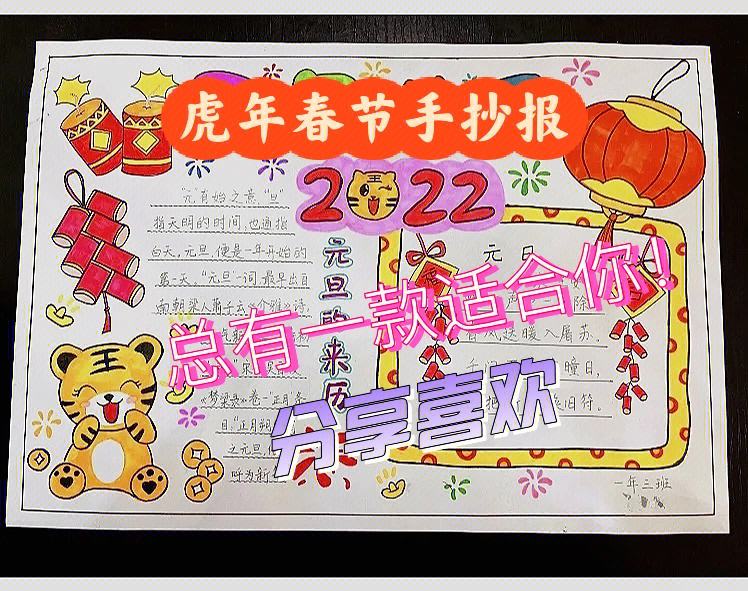 虎年春节手抄报
2022
"元"有始之意,"旦"
指天明的时间,也通指
白天,元旦,便是一年开始的
第一天。"元旦"一词,最早出自
南朝梁人萧子云《介雅》诗
《梦梁录》卷一"正月
之元旦,
呼为新
元旦的来历
元日
声 除
风送暖入屠苏.
千 瞳日,
把 旧符.
总有一款适合你!
分享喜欢
一年三班